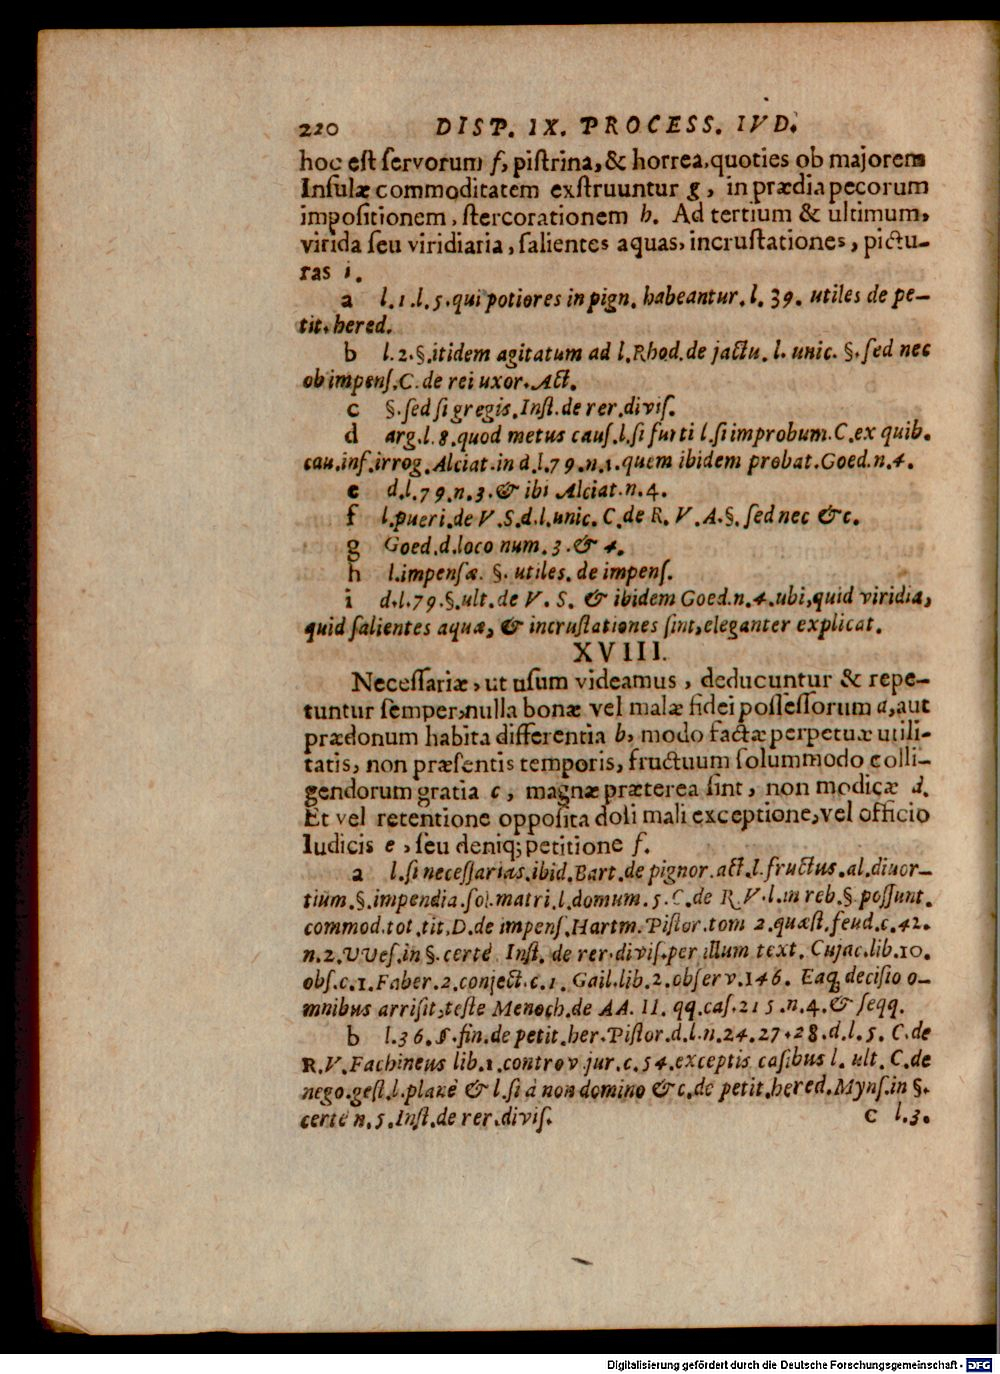 220 DISP. IX. PROCESS. IVD.
hoc est servorum f, pistrina, & horrea, quoties ob majorem
Insulæ commoditatem exstruuntur g, in prædia pecorum
impositionem, stercorationem h. Ad tertium & ultimum,
virida seu viridiaria, salientes aquas, incrustationes, pictu-
ras i.
a l. 1. l. 5. qui potiores in pign. habeantur. l. 39. utiles de pe-
tit. hered.
b l. 2. §. itidem agitatum ad l. Rhod. de jactu. l. unic. §. sed nec
ob impens. C. de rei uxor. Act.
c §. sed si gregis. Inst. de rer. divis.
d arg. l. 8. quod metus caus. l. si furti l. si improbum. C. ex quib.
cau. inf. irrog. Alciat. in d. l. 79. n. 1. quem ibidem probat. Goed. n. 4.
e d. l. 79. n. 3. & ibi Alciat. n. 4.
f l. pueri. de V. S. d. l. unic. C. de R. V. A. §. sed nec &c.
g Goed. d. loco num. 3. & 4.
h l. impensæ. §. utiles. de impens.
i d. l. 79. §. ult. de V. S. & ibidem Goed. n. 4. ubi, quid viridia,
quid salientes aquæ, & incrustationes sint, eleganter explicat.
XVIII.
Necessariæ, ut usum videamus, deducuntur & repe-
tuntur semper, nulla bonæ vel malæ fidei possessorum a, aut
prædonum habita differentia b, modo factæ perpetuæ utili-
tatis, non præsentis temporis, fructuum solummodo colli-
gendorum gratia c, magnæ præterea sint, non modicæ d.
Et vel retentione opposita doli mali exceptione, vel officio
Iudicis e, seu deniq; petitione f.
a l. si necessarias. ibid. Bart. de pignor. act. l. fructus. al. divor-
tium. §. impendia. sol. matri. l. domum. 5. C. de R. V. l. in reb. §. possunt.
commod. tot. tit. D. de impens. Hartm. Pistor. tom 2. quæst. feud. c. 42.
n. 2. VVes. in §. certè Inst. de rer. divis. per illum text. Cujac. lib. 10.
obs. c. 1. Faber. 2. conject. c. 1. Gail. lib. 2. observ. 146. Eaq; decisio o-
mnibus arrisit, teste Menoch. de AA. II. qq. cas. 215. n. 4. & seqq.
b l. 36. §. fin. de petit. her. Pistor. d. l. n. 24. 27. 28. d. l. 5. C. de
R. V. Fachineus lib. 1. controv. jur. c. 54. exceptis casibus l. ult. C. de
nego. gest. l. planè & l. si à non domino &c. de petit. hered. Myns. in §.
certè n. 5. Inst. de rer. divis. c l. 3.
Digitalisierung gefördert durch die Deutsche Forschungsgemeinschaft - DFG